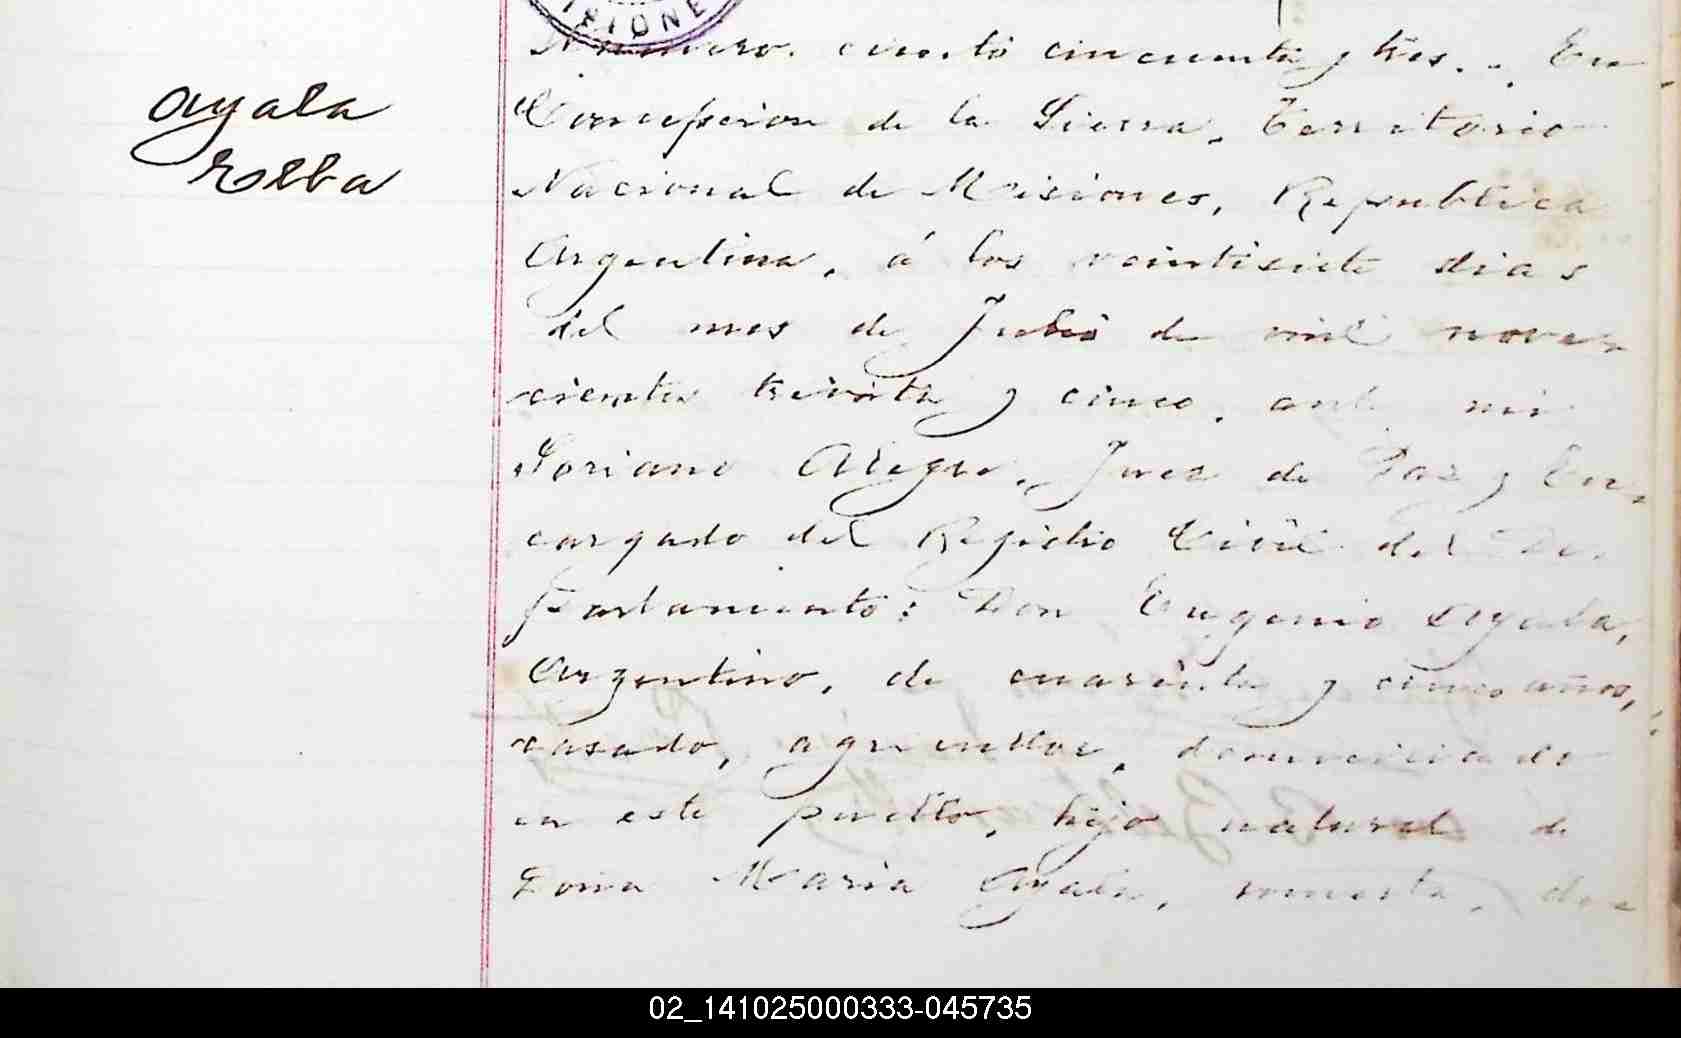 ISIONE
Ayala
Elba
Numero ciento cincuenta y tres. En
Concepcion de la Sierra, Territorio
Nacional de Misiones, Republica
Argentina, á los veintisiete dias
del mes de Julio de mil nove-
cientos treinta y cinco, ante mi
Soriano Alegre, Juez de Paz y En-
cargado del Registro Civil del De-
partamento: Don Eugenio Ayala,
Argentino, de cuarenta y cinco años,
casado, agricultor, domiciliado
en este pueblo, hijo natural de
Doña Maria Ayala, muerta,
02_141025000333-045735